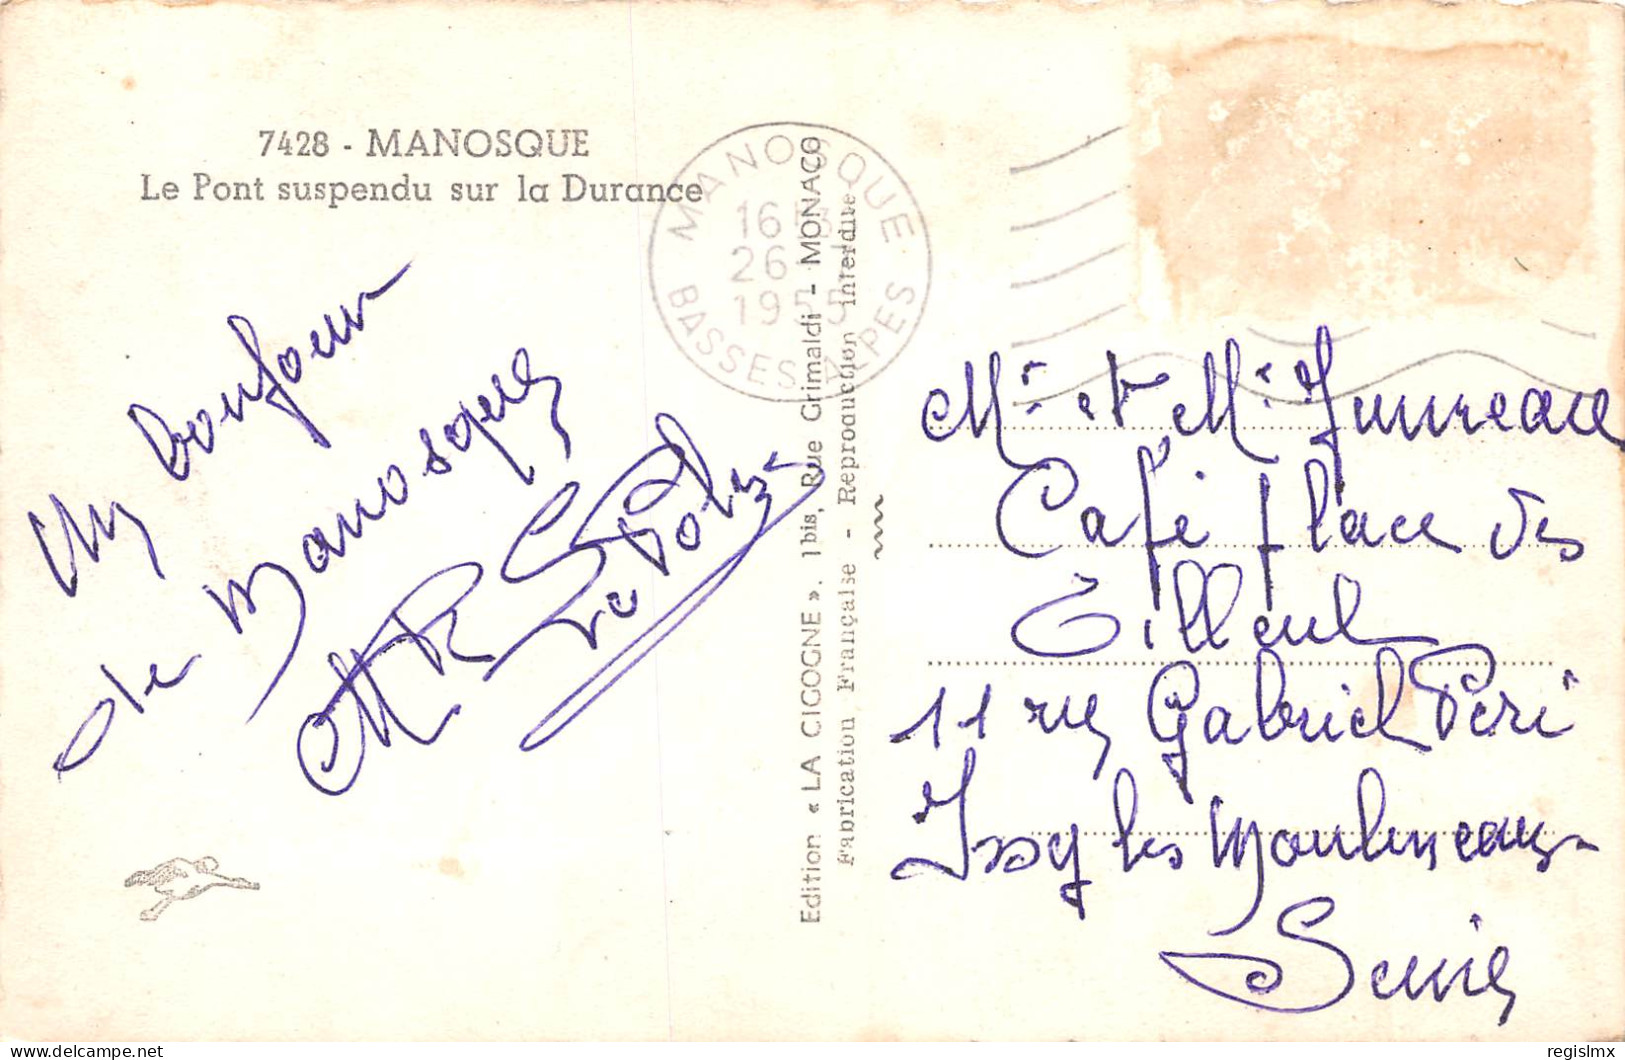 7428 - MANOSQUE
Le Pont suspendu sur la Durance
MANOSQUE
16
26
19
BASSES ALPES
Un bonjour
de Manosque
Edition « LA CIGOGNE ». 1 bis, Rue Grimaldi - MONACO
Fabrication Française - Reproduction interdite
Mr et Me
Café Place des
Tilleul
11 rue Gabriel Péri
Issy les Moulineaux
Seine
regislmx